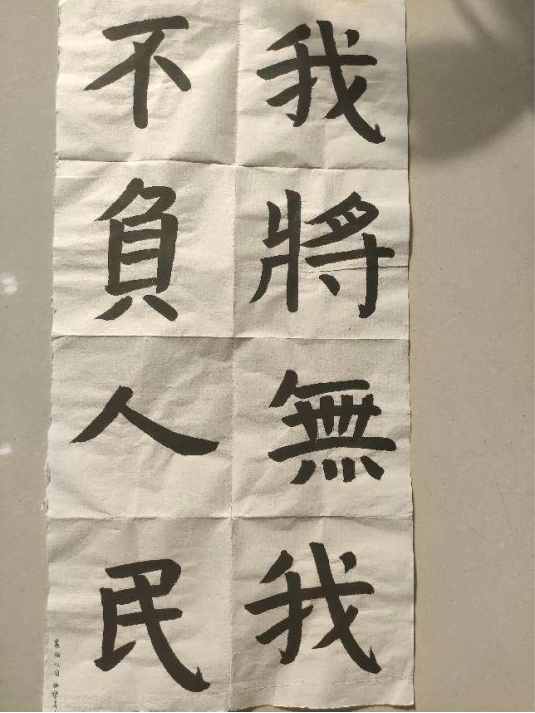 我將無我
不負人民